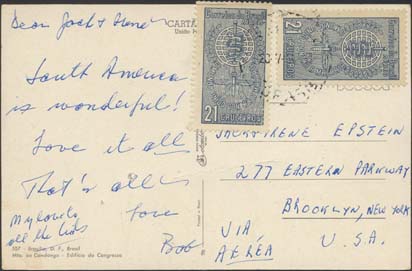 Dear Jack & Irene
South America
is wonderful!
Love it all
That's all
Love
Bob
My love to
all the kids
CARTÃ
21 CRUZEIROS
21
CRUZEIROS
JACK & IRENE EPSTEIN
277 EASTERN PARKWAY
BROOKLYN, NEW YORK
U.S.A.
VIA
AÉREA
107 - Brasília, D. F., Brasil
Mto. do Candango - Edifício do Congresso